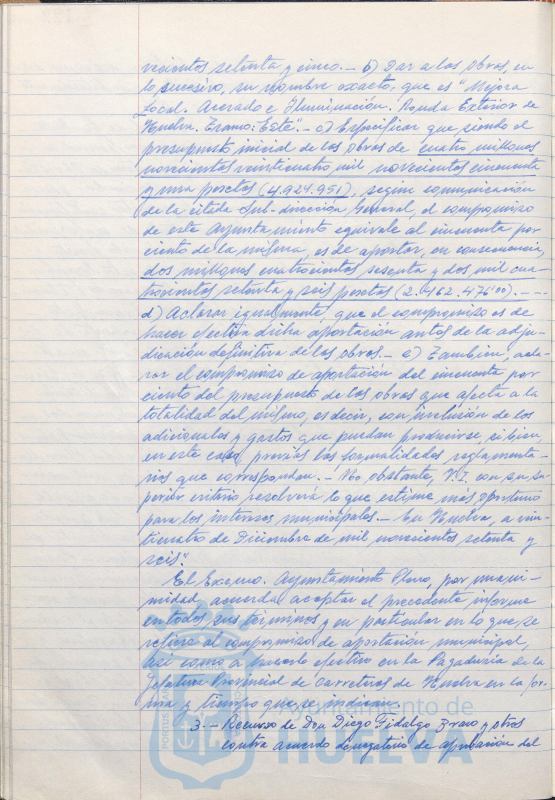 vecientos setenta y cinco.- b) Dar a las obras, en
lo sucesivo, su nombre exacto, que es "Mejora
Local. Acerado e Iluminación. Ronda Exterior de
Huelva. Tramo: Este".- c) Especificar que siendo el
presupuesto inicial de las obras de cuatro millones
novecientos veinticuatro mil novecientos cincuenta
y una pesetas (4.924.951), según comunicación
de la citada Sub-dirección General, el compromiso
de este Ayuntamiento equivale al cincuenta por
ciento de la misma, es de aportar, en consecuencia,
dos millones cuatrocientos sesenta y dos mil cua-
trocientos setenta y seis pesetas (2.462.476'00).-
d) Aclarar igualmente, que el compromiso es de
hacer efectiva dicha aportación antes de la adju-
dicación definitiva de las obras.- e) También, acla-
rar el compromiso de aportación del cincuenta por
ciento del presupuesto de las obras que afecta a la
totalidad del mismo, es decir, con inclusión de los
adicionales y gastos que puedan producirse, si bien
en este caso previas las formalidades reglamenta-
rias que correspondan.- No obstante, V.I. con su su-
perior criterio resolverá lo que estime más oportuno
para los intereses municipales.- En Huelva, a vein-
ticuatro de Diciembre de mil novecientos setenta y
seis".
El Excmo. Ayuntamiento Pleno, por unani-
midad, acuerda aceptar el precedente informe
en todos sus términos y en particular en lo que se
refiere al compromiso de aportación municipal,
así como a hacerlo efectivo en la Pagaduría de la
Jefatura Provincial de Carreteras de Huelva en la for-
ma y tiempo que se indican.
3.- Recurso de Don Diego Fidalgo Bravo y otros
contra acuerdo denegatorio de aprobación del
Ayuntamiento de
HUELVA